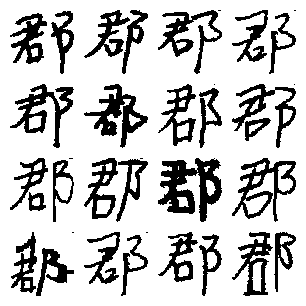 郡郡郡郡
郡郡郡郡
郡郡郡郡
郡郡郡郡